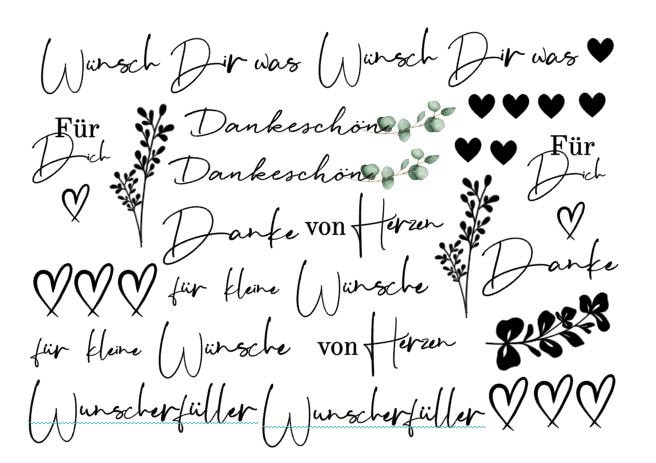 Wünsch Dir was Wünsch Dir was
Für
Dich
Dankeschön
Dankeschön
Für
Dich
Danke von Herzen
Danke
für kleine Wünsche
für kleine Wünsche von Herzen
Wunscherfüller Wunscherfüller